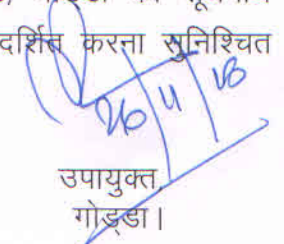 दर्शित करना सुनिश्चित
26/11/18
उपायुक्त,
गोड्डा।